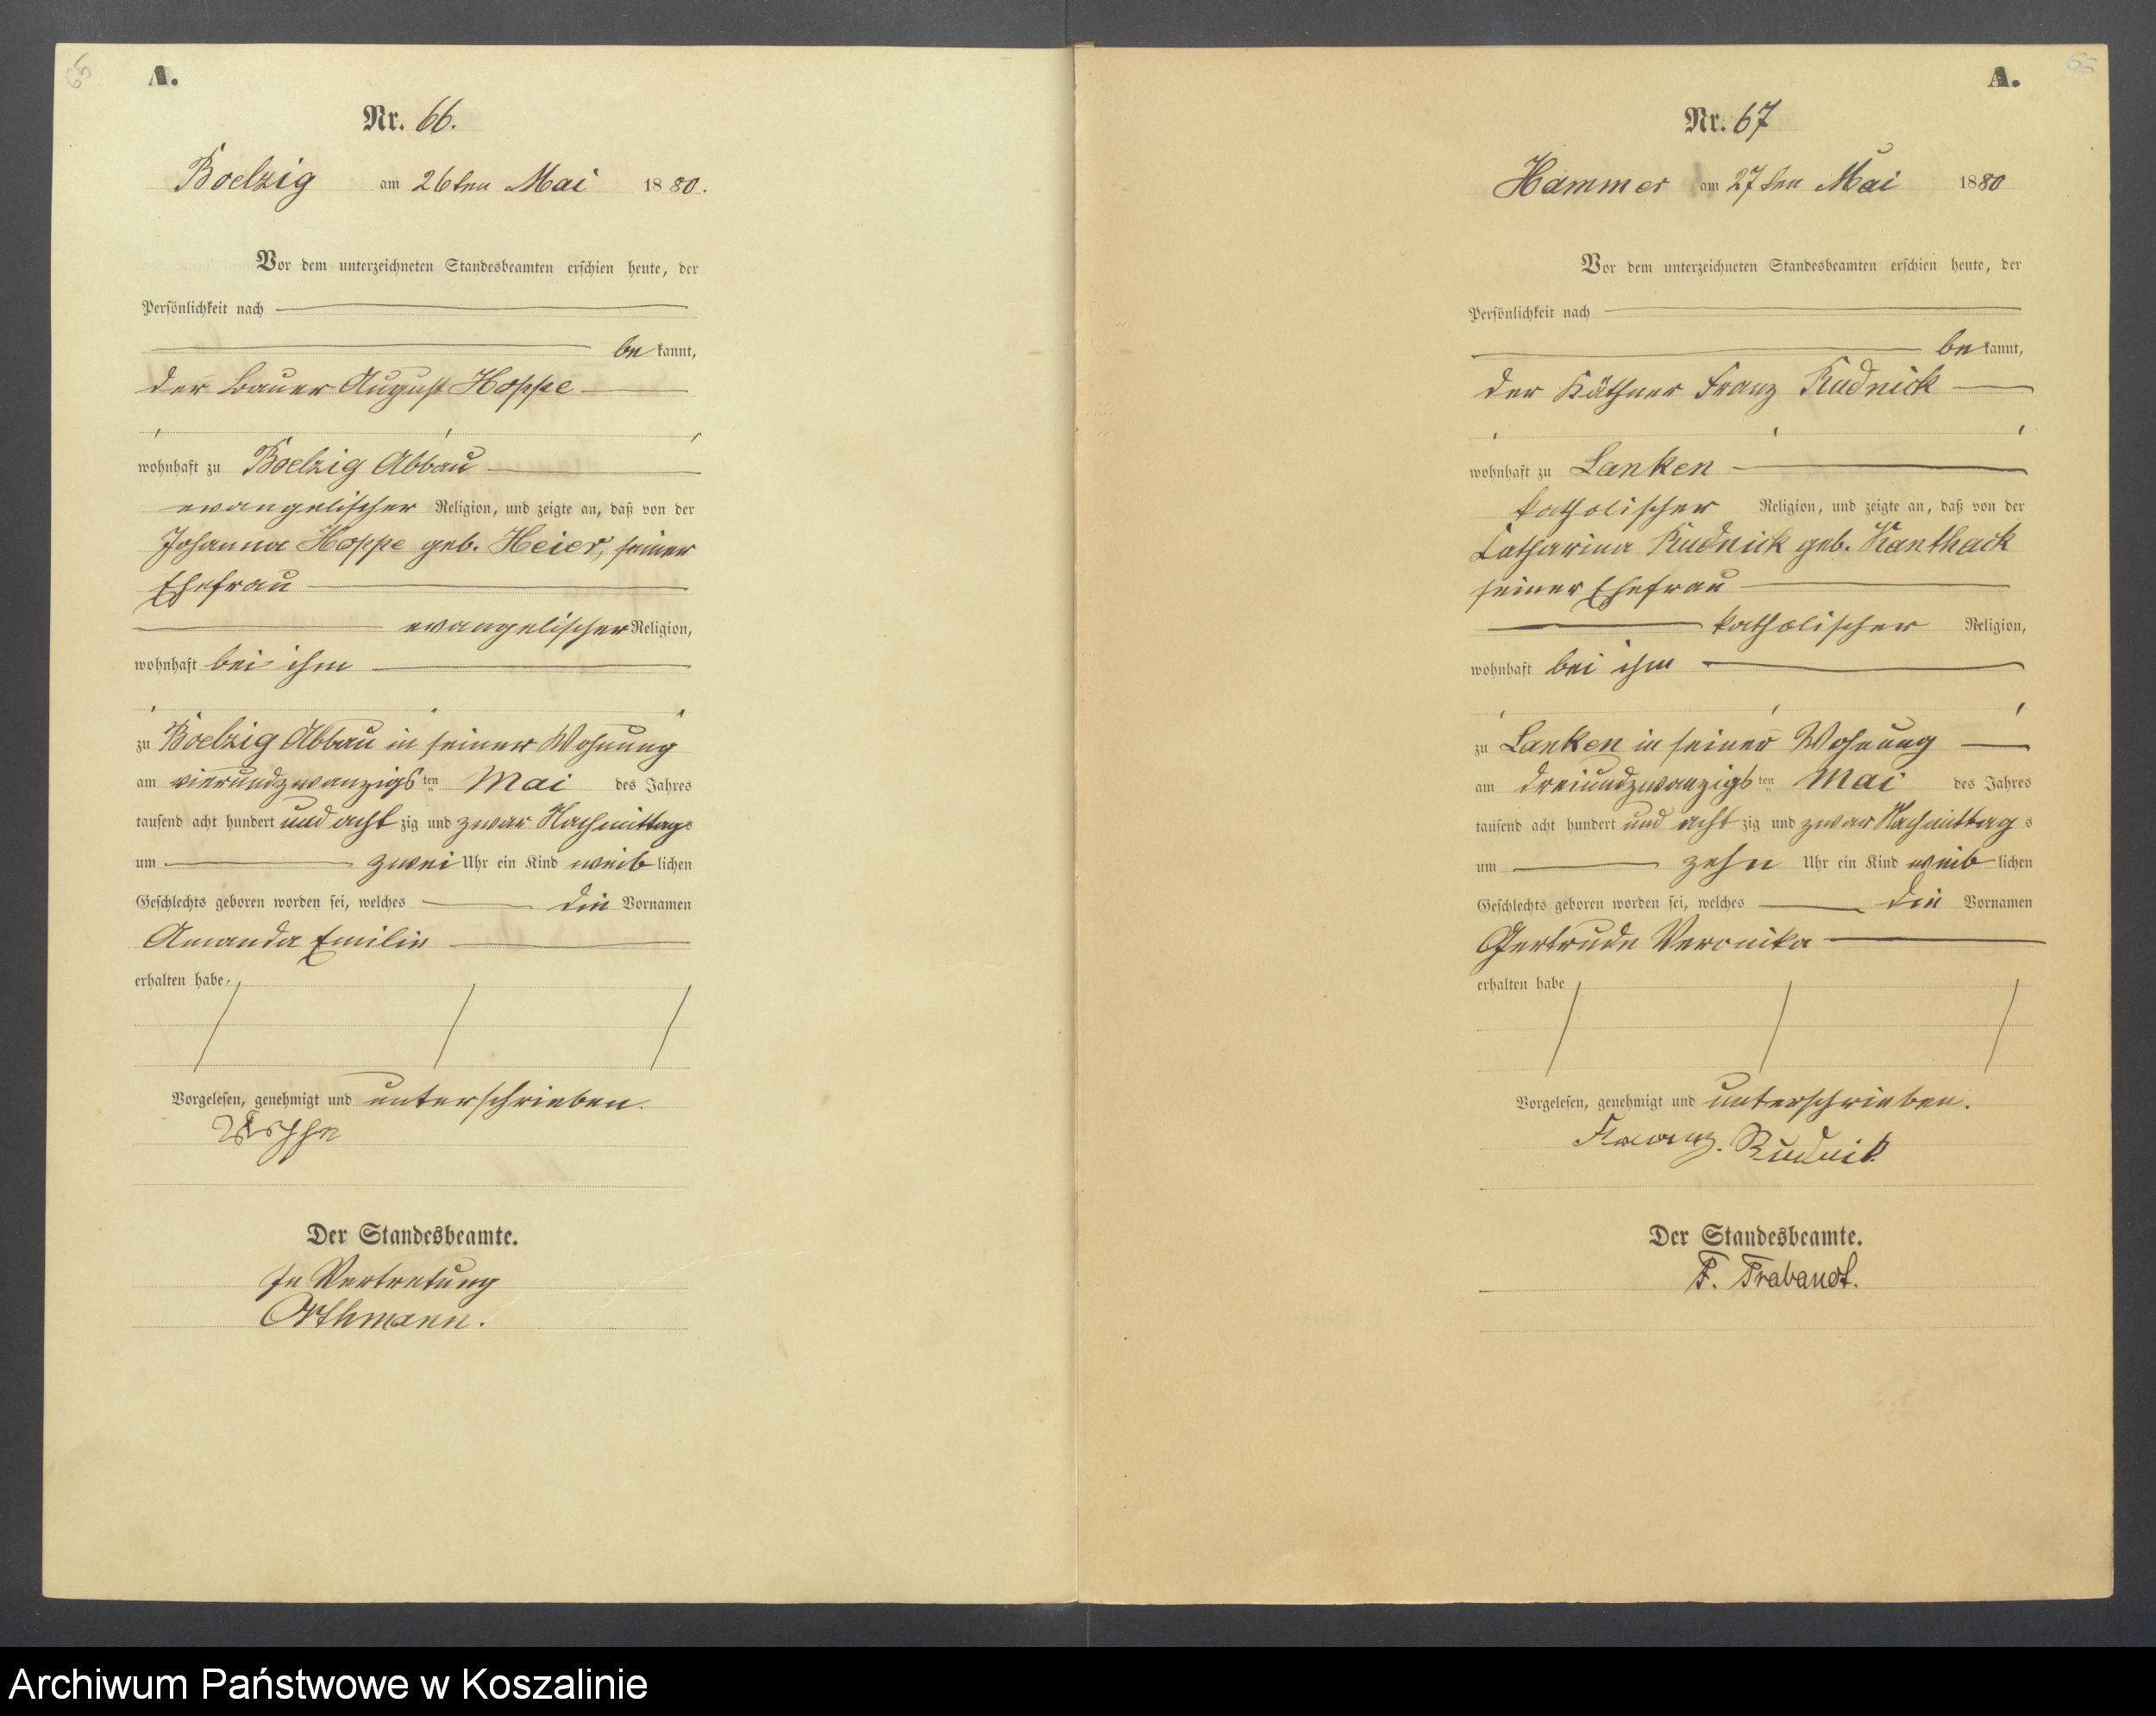 65
A.
Nr. 66.
Boelzig am 26ten Mai 1880.
Vor dem unterzeichneten Standesbeamten erschien heute, der
Persönlichkeit nach
be kannt,
der Bauer August Hoppe
wohnhaft zu Boelzig Abbau
evangelischer Religion, und zeigte an, daß von der
Johanna Hoppe geb. Heier, seiner
Ehefrau
evangelischer Religion,
wohnhaft bei ihm
zu Boelzig Abbau in seiner Wohnung
am vierundzwanzigs ten Mai des Jahres
tausend acht hundert und acht zig und zwar Nachmittags
um zwei Uhr ein Kind weib lichen
Geschlechts geboren worden sei, welches die Vornamen
Amanda Emilie
erhalten habe.
Vorgelesen, genehmigt und unterschrieben.
Hoppe
Der Standesbeamte.
In Vertretung
Orthmann.
A.
Nr. 67
Hammer am 27ten Mai 1880
Vor dem unterzeichneten Standesbeamten erschien heute, der
Persönlichkeit nach
be kannt,
der Käthner Franz Rudnick
wohnhaft zu Lanken
katholischer Religion, und zeigte an, daß von der
Catharina Rudnick geb. Kanthack
seiner Ehefrau
katholischer Religion,
wohnhaft bei ihm
zu Lanken in seiner Wohnung
am dreiundzwanzigs ten Mai des Jahres
tausend acht hundert und acht zig und zwar Nachmittag s
um zehn Uhr ein Kind weib lichen
Geschlechts geboren worden sei, welches die Vornamen
Gertrude Veronika
erhalten habe
Vorgelesen, genehmigt und unterschrieben.
Franz. Rudnik
Der Standesbeamte.
F. Trabandt.
Archiwum Państwowe w Koszalinie